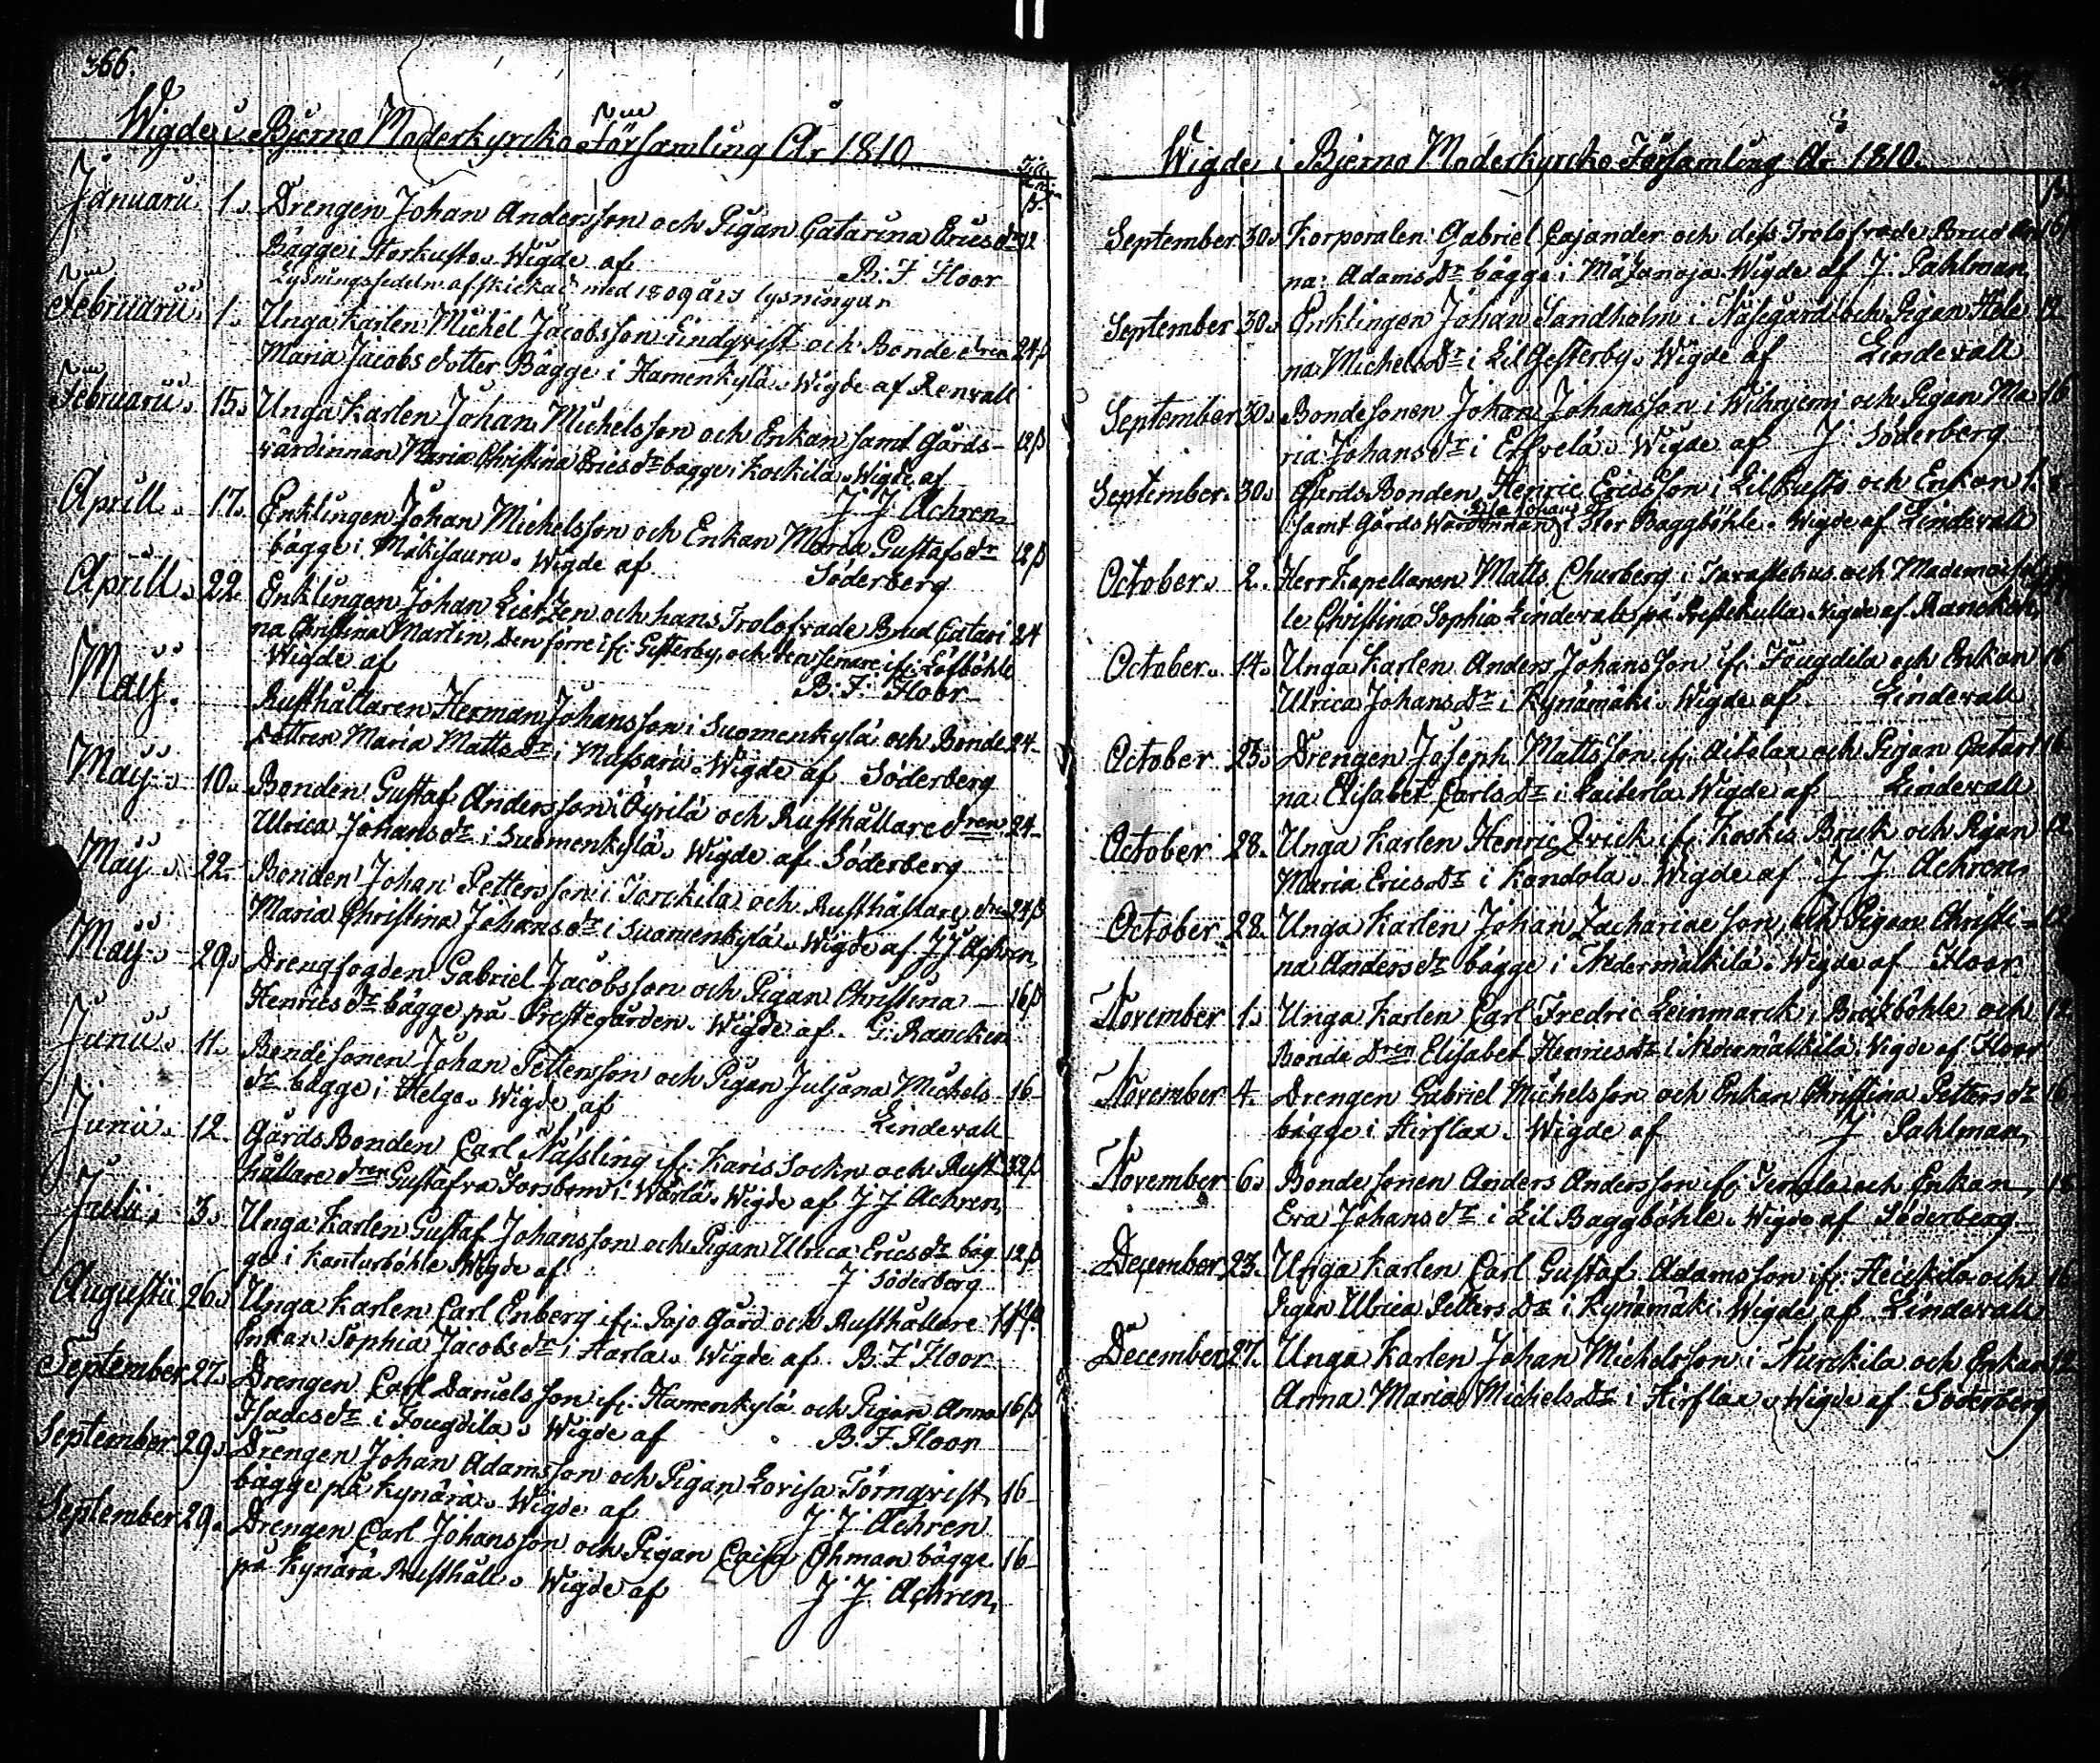 366.
Wigde i Bjerno Moderkyrcko Församling År 1810
Januarii 1. Drengen Johan Andersson och Pigan Catarina Ericsdr 12
Bägge i Storkusto. Wigde af B: F Floor
Lysningssedeln afskickad med 1809 års lysningar
Februarii 1. Unga Karlen Michel Jacobsson Lindqvist och Bonde dren 24 β
Maria Jacobs dotter Bägge i Hamenkylä. Wigde af Renvall
Februarii 15. Unga Karlen Johan Michelsson och Enkan samt Gårds- 12 β
värdinnan Maria Christina Ericsdr bägge i Kockila. Wigde af
J J Achren
Aprill 17. Enklingen Johan Michelsson och Enkan Maria Gustafsdr 12 β
bägge i Mäkisauru. Wigde af Söderberg
Aprill 22. Enklingen Johan Lietzen och hans Trolofvade Brud Catari 24
na Christina Martin, Den förre ifr: Gesterby, och den senare ifr: Löfböhle
Wigde af B. F. Floor
Maij. Rusthållaren Herman Johansson i Suomenkylä och Bonde 24-
dottren Maria Mattsdr i Massaru. Wigde af Söderberg
Maij 10. Bonden Gustaf Andersson i Öyrilä och Rusthållare dren 24-
Ulrica Johansdr i Suomenkylä. Wigde af Söderberg
Maij 22. Bonden Johan Pettersson i Torckila och Rusthållare dren 24 β
Maria Christina Johansdr i Suomenkylä. Wigde af J J Achren
Maij 29. Drengfogden Gabriel Jacobsson och Pigan Christina 16 β
Henricsdr bägge på Prestegården. Wigde af G: Rancken
Junii 11. Bondesonen Johan Pettersson och Pigan Juliana Michels- 16-
dr bägge i Helgo. Wigde af Lindevall
Junii 12 Gårds Bonden Carl Nässling ifr: Karis Sockn och Rust 32 β
hållare dren Gustafva Forsbom i Wärlä. Wigde af J J Achren
Julii 3. Unga Karlen Gustaf Johansson och Pigan Ulrica Ericsdr bäg 12 β
ge i Kanturböhle Wigde af J Söderberg
Augustii 26. Unga Karlen Carl Enberg ifr: Pajo Gård och Rusthållare
Enkan Sophia Jacobsdr i Harla. Wigde af B. F Floor
September 27. Drengen Carl Danielsson ifr: Hamenkylä och Pigan Anna 16 β
Isacsdr i Fougdila. Wigde af B. F. Floor
September 29. Drengen Johan Adamsson och Pigan Lovisa Törnqvist 16
bägge på Kynärä. Wigde af J J Achren
September 29. Drengen Carl Johansson och Pigan Caisa Öhman bägge 16-
på Kynärä Rusthåll. Wigde af J J Achren
Wigde i Bjerno Moderkyrcko Församling År 1810.
September 30. Korporalen Gabriel Cajander och dess Trolofvade Brud 16
na Adamsdr bägge i Mäjanoja Wigde af J. Pahlman
September 30. Enklingen Johan Sandholm i Näsegård och Pigan Hele 12
na Michelsdr i Lil Gesterby. Wigde af Lindevall
September 30. Bondesonen Johan Johansson i Wihniemi och Pigan Ma 16
ria Johansdr i Erfvelä. Wigde af J Söderberg
September 30. Gårds Bonden Henric Ericsson i Lil Kusto och Enkan
samt Gårds Wärdinnan i Stor Baggböhle. Wigde af Lindevall
October 2. Herr Kapellanen Matts Churberg i Tavastehus och Mademoisel
le Christina Sophia Lindevall på Prestkulla Wigde af Rancken
October 14. Unga Karlen Anders Johansson ifr: Fougdila och Enkan 16
Ulrica Johansdr i Kynämäki. Wigde af Lindevall
October 25. Drengen Joseph Mattsson ifr: Aitolax och Pigan Catari 16
na Elisabet Carlsdr i Laiterla Wigde af Lindevall
October 28. Unga Karlen Henric Qvick ifr: Koskis Bruk och Pigan 12
Maria Ericsdr i Kandola. Wigde af J J. Achren
October 28. Unga Karlen Johan Zachariae son och Pigan Christi- 12
na Andersdr bägge i Nedermälkilä. Wigde af Floor
November 1. Unga Karlen Carl Fredric Leinmarck i Breitböhle och 12
Bonde Dren Elisabet Henricsdr i Nedermälkilä. Wigde af Floor
November 4. Drengen Gabriel Michelsson och Enkan Christina Pettersdr 16
bägge i Hirflax. Wigde af J Pahlman
November 6. Bondesonen Anders Andersson ifr: och Enkan 12
Eva Johansdr i Lil Baggböhle. Wigde af Söderberg
December 23. Unga Karlen Carl Gustaf Adamsson ifr: Heickilä och 16
Pigan Ulrica Pettersdr i Kynämäki. Wigde af Lindevall
December 27. Unga Karlen Johan Michelsson i Nurckila och Enkan 12
Anna Maria Michelsdr i Hirflax. Wigde af Söderberg